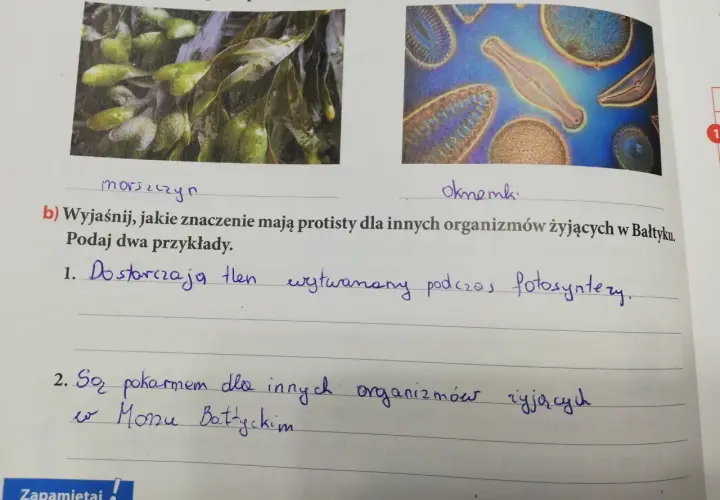 morszczyn
okrzemki
b) Wyjaśnij, jakie znaczenie mają protisty dla innych organizmów żyjących w Bałtyku.
Podaj dwa przykłady.
1. Dostarczają tlen wytwarzany podczas fotosyntezy.
2. Są pokarmem dla innych organizmów żyjących
w Morzu Bałtyckim
Zapamiętaj!
1